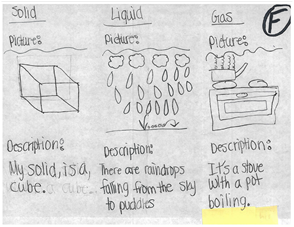 Solid
Picture:
Description:
My solid, is a,
cube.
Liquid
Picture:
Description:
There are raindrops
falling from the sky
to puddles
Gas
F
Picture:
Description:
It's a stove
with a pot
boiling.